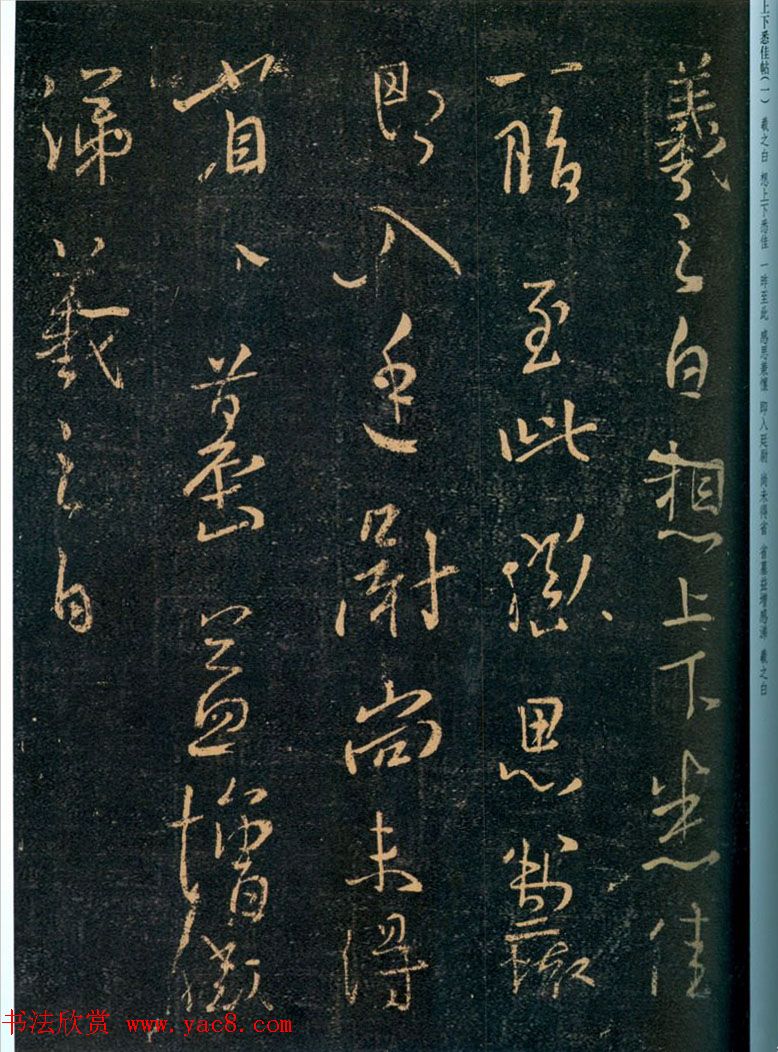 羲之白想上下悉佳
一昨至此感思
即入廷尉尚未得
省省墓益增感
涕羲之白
上下悉佳帖（一） 羲之白 想上下悉佳 一昨至此 感思兼懷 即入廷尉 尚未得省 省墓益增感涕 羲之白
书法欣赏 www.yac8.com